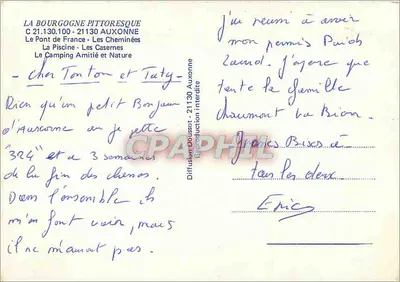 LA BOURGOGNE PITTORESQUE
C 21.130.100 - 21130 AUXONNE
Le Pont de France - Les Cheminées
La Piscine - Les Casernes
Le Camping Amitié et Nature
- cher Tonton et Taty -
Rien qu'un petit Bonjour
d'Auxonne où je
"324" et a 3 semaines
de la fin des
Dans l'ensemble ils
m'en font voir, mais
il ne m'auront pas.
Diffusion Doussot - 21130 Auxonne
Reproduction interdite
CPAPHIL
j'ai réussi à avoir
mon permis Poids
Lourd. j'espère que
toute la famille
chaumont va Bien.
Grosses Bises à
tous les deux.
Eric